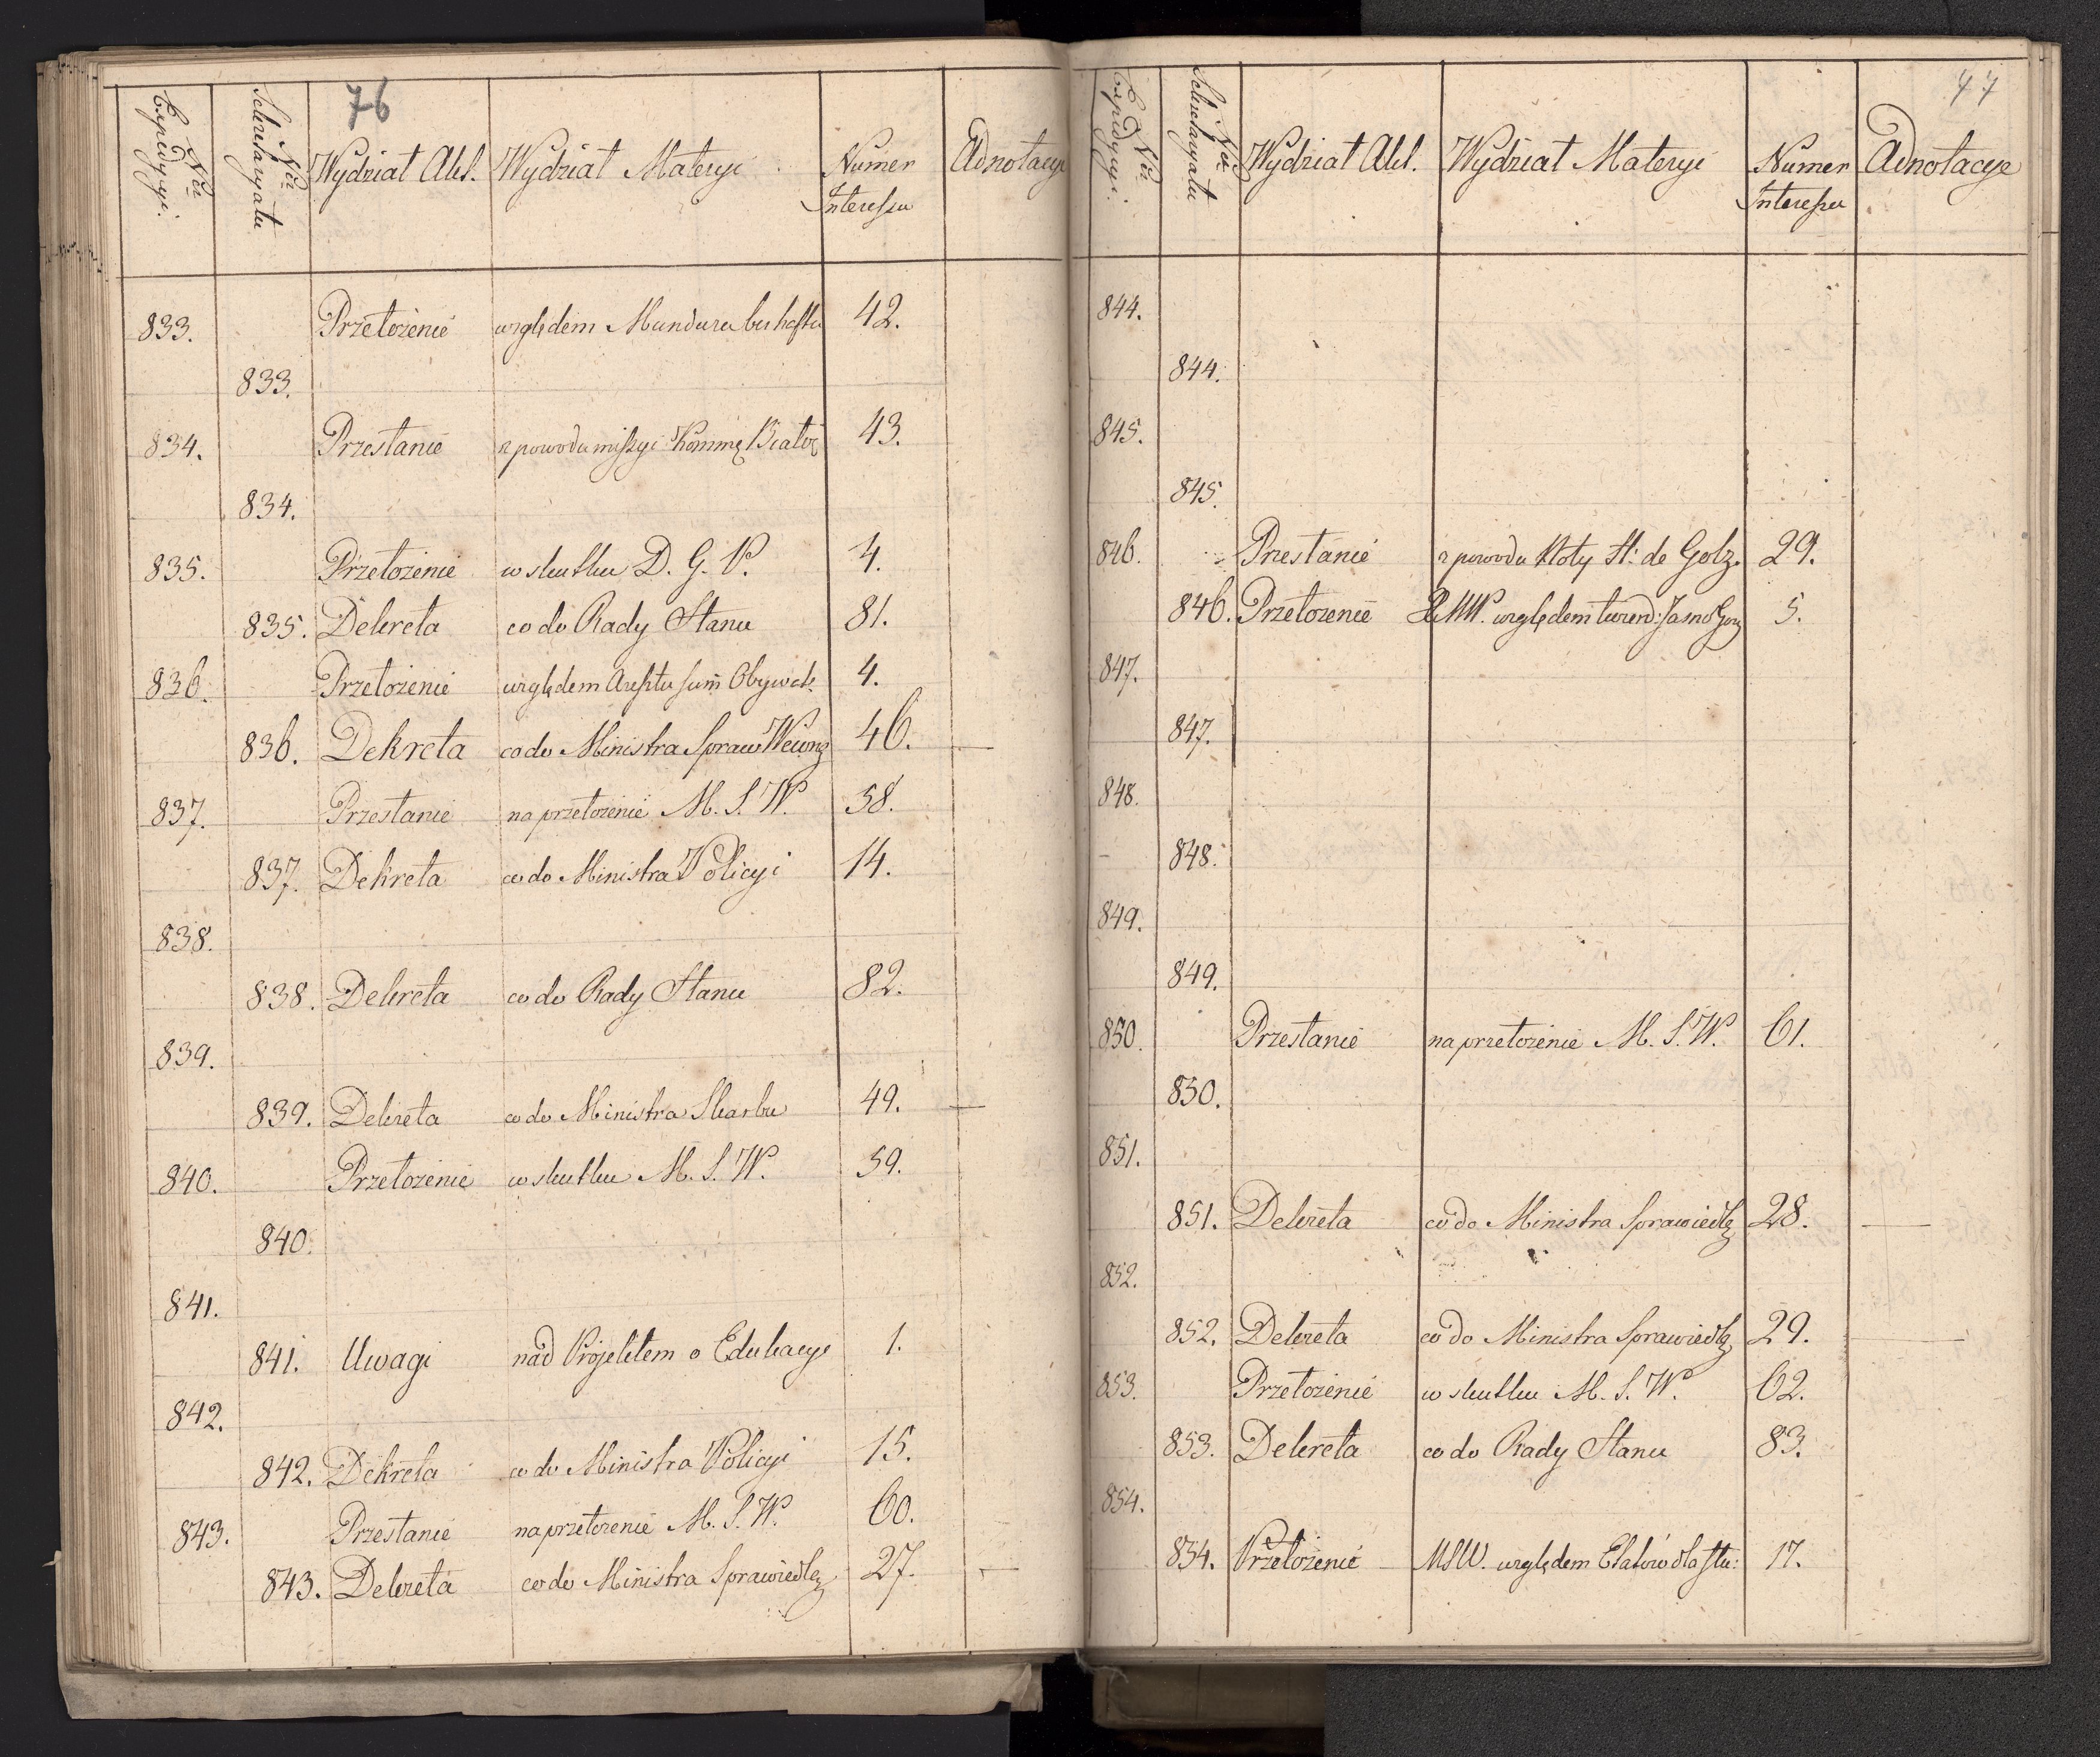 76
Nro Expedycyi.
Nro Sekretaryatu
Wydział Akt.
Wydział Materyi
Numer Interessu
Adnotacye
833. Przełożenie względem Munduru bez haftu 42.
833.
834. Przesłanie z powodu missyi Kommę 43.
834.
835. Przełożenie w skutku D. G. P. 4.
835. Dekreta co do Rady Stanu 81.
836. Przełożenie względem Aresztu sum Obywat. 4.
836. Dekreta co do Ministra Spraw Wewnę 46.
837. Przesłanie na przełożenie M. S. W. 58.
837. Dekreta co do Ministra Policyi 14.
838.
838. Dekreta co do Rady Stanu 82.
839.
839. Dekreta co do Ministra Skarbu 49.
840. Przełożenie w skutku M. S. W. 59.
840.
841.
841. Uwagi nad Projektem o Edukacye 1.
842.
842. Dekreta co do Ministra Policyi 15.
843. Przesłanie na przełożenie M. S. W. 60.
843. Dekreta co do Ministra Sprawiedlę 27.
77
Nro Expedycyi.
Nro Sekretaryatu
Wydział Akt.
Wydział Materyi
Numer Interessu
Adnotacye
844.
844.
845.
845.
846. Przesłanie z powodu Noty H: de Golz. 29.
846. Przełożenie względem twierd: Jasno Gory 5.
847.
847.
848.
848.
849.
849.
850. Przesłanie na przełożenie M. S. W. 61.
850.
851.
851. Dekreta co do Ministra Sprawiedlę 28.
852.
852. Dekreta co do Ministra Sprawiedlę 29.
853. Przełożenie w skutku M. S. W. 62.
853. Dekreta co do Rady Stanu 83.
854.
854. Przełożenie MSW. względem Etatów dla 17.